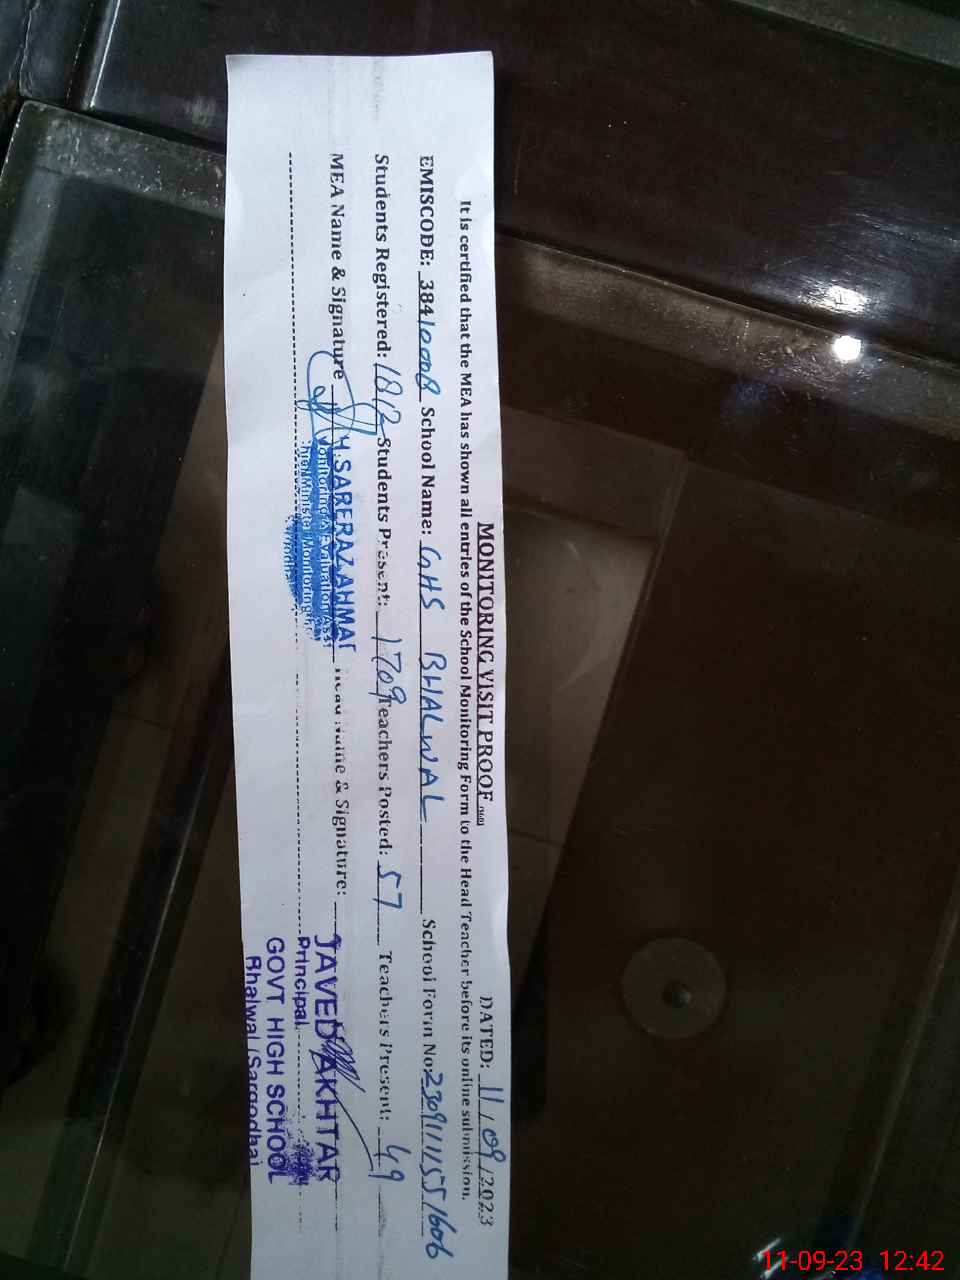 MONITORING VISIT PROOF
DATED: 11/09/2023
It is certified that the MEA has shown all entries of the School Monitoring Form to the Head Teacher before its online submission.
EMISCODE: 38410008 School Name: GHS BHALWAL School Form No: 2309111551606
Students Registered: 1812 Students Present: 1709 Teachers Posted: 57 Teachers Present: 49
MEA Name & Signature Head Name & Signature:
SARFRAZ AHMAD
Monitoring & Evaluation Asst
Chief Minister Monitoring
JAVED AKHTAR
Principal
GOVT HIGH SCHOOL
Bhalwal (Sargodha)
11-09-23 12:42